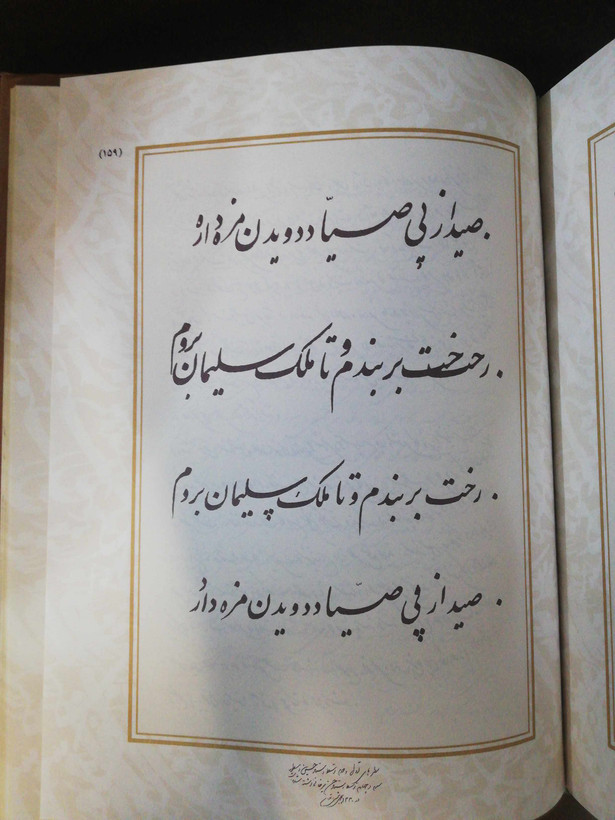 (۱۵۹)
صید از پی صیّاد دویدن مزه دارد
رخت بربندم و تا ملک سلیمان بروم
رخت بربندم و تا ملک سلیمان بروم
صید از پی صیّاد دویدن مزه دارد